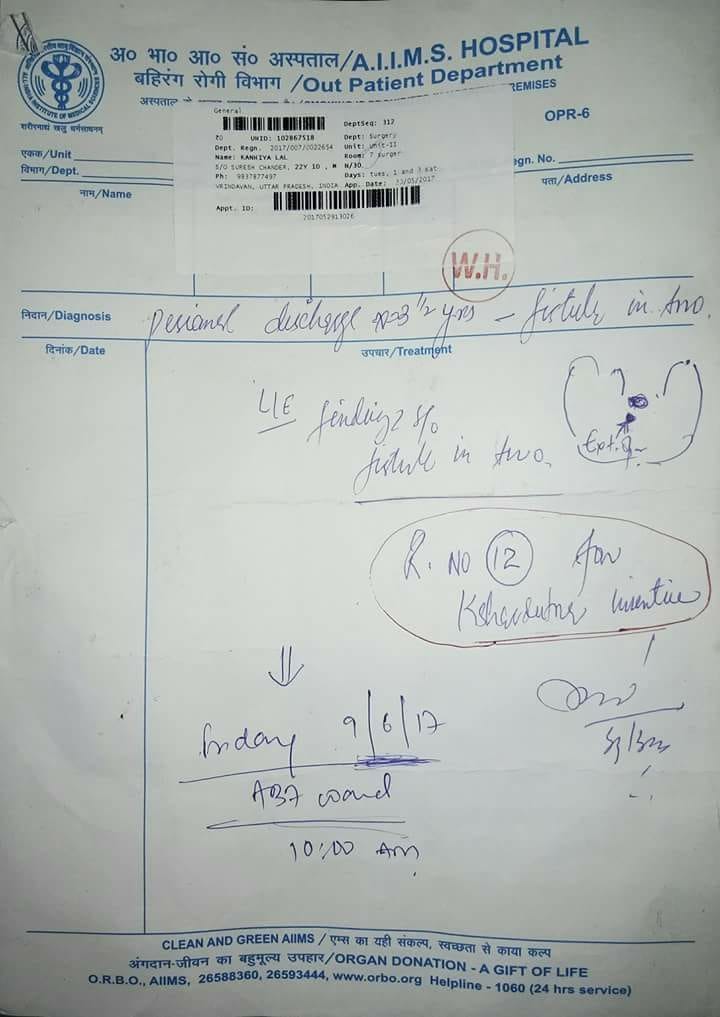 अ० भा० आ० सं० अस्पताल/A.I.I.M.S. HOSPITAL
बहिरंग रोगी विभाग /Out Patient Department
अस्पताल
REMISES
OPR-6
शरीरमाद्यं खलु धर्मसाधनम्
General
DeptSeq: 317
UHID: 102867518
Dept: Surgery
Dept. Regn. 2017/007/0022654
Unit: Unit-II
Name: KANHIYA LAL
S/O SURESH CHANDER, 22Y 1D , M N/30
Ph: 9837877497
Days: tues, 1 and 3 sat
VRINDAVAN, UTTAR PRADESH, INDIA App. Date: 23/05/2017
Appt. ID:
2017052913026
एकक/Unit
egn. No.
विभाग/Dept.
पता/Address
नाम/Name
W.H.
निदान/Diagnosis
discharge 3 1/2 yrs - fistula in ano.
दिनांक/Date
उपचार/Treatment
L/E findings s/o
fistula in ano.
Ext. O
R. NO 12 for
Ksharsutra
Friday 9/6/17
AB7 ward
10:00 AM
CLEAN AND GREEN AIIMS / एम्स का यही संकल्प, स्वच्छता से काया कल्प
अंगदान-जीवन का बहुमूल्य उपहार/ORGAN DONATION - A GIFT OF LIFE
O.R.B.O., AIIMS, 26588360, 26593444, www.orbo.org Helpline - 1060 (24 hrs service)